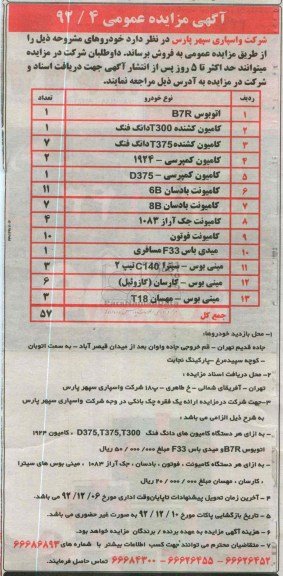 آگهی مزایده عمومی ۹۲/۴
شرکت واسپاری سپهر پارس در نظر دارد خودروهای مشروحه ذیل را
از طریق مزایده عمومی به فروش برساند. داوطلبان شرکت در مزایده
میتوانند حد اکثر تا ۵ روز پس از انتشار آگهی جهت دریافت اسناد و
شرکت در مزایده به آدرس ذیل مراجعه نمایند.
ردیف نوع خودرو تعداد
۱ اتوبوس B7R ۱
۲ کامیون کشنده T300 دانگ فنگ ۱
۳ کامیون کشنده T375 دانگ فنگ ۷
۴ کامیون کمپرسی – ۱۹۲۴ ۲
۵ کامیون کمپرسی – D375 ۱
۶ کامیونت بادسان 6B ۱۱
۷ کامیونت بادسان 8B ۷
۸ کامیونت جک آراز ۱۰۸۳ ۴
۹ کامیونت فوتون ۱۰
۱۰ میدی باس F33 مسافری ۱
۱۱ مینی بوس – سیترا C140 تیپ ۲ ۳
۱۲ مینی بوس – کارسان (گازوئیل) ۶
۱۳ مینی بوس – مهسان T18 ۳
جمع کل ۵۷
۱- محل بازدید خودروها:
جاده قدیم تهران – قم خروجی جاده واوان بعد از میدان قیصر آباد – به سمت اتوبان
– کوچه سپیدمرغ – پارکینگ نجابت
۲- محل دریافت اسناد مزایده :
تهران – آفریقای شمالی – خ طاهری – پ۱۸ شرکت واسپاری سپهر پارس
۳-جهت شرکت درمزایده ارائه یک فقره چک بانکی در وجه شرکت واسپاری سپهر پارس
به شرح ذیل الزامی می باشد :
– به ازای هر دستگاه کامیون های دانگ فنگ D375,T375,T300 ، کامیون ۱۹۲۴
اتوبوس B7R و میدی باس F33 مبلغ ۵۰/۰۰۰/۰۰۰ ریال
– به ازای هر دستگاه کامیونت ، فوتون ، بادسان ، جک آراز ۱۰۸۳ ، مینی بوس های سیترا
، کارسان ، مهسان مبلغ ۲۰/۰۰۰/۰۰۰ ریال
۴– آخرین زمان تحویل پیشنهادات تاپایان وقت اداری مورخ ۹۲/۱۲/۰۶ می باشد.
۵ – تاریخ بازگشایی پاکات مورخ ۹۲/۱۲/۱۰ به صورت غیر حضوری می باشد.
۶ – هزینه آگهی مزایده به عهده برنده / برندگان مزایده خواهد بود.
۷ – متقاضیان محترم می توانند جهت کسب اطلاعات بیشتر با شماره های ۶۶۶۸۶۸۹۳
۶۶۶۲۶۴۵۲ – ۶۶۶۲۶۴۵۵ – ۶۶۶۸۴۳۰۰ تماس حاصل فرمایند.